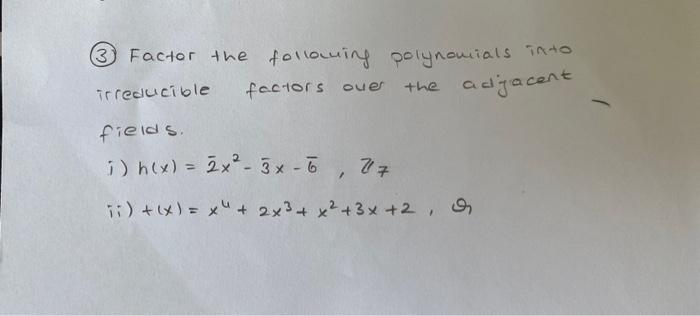 ③ Factor the following polynomials into
irreducible factors over the adjacent
fields.
i) h(x) = 2̄x² - 3̄x - 6̄ , ℤ7
ii) t(x) = x⁴ + 2x³ + x² + 3x + 2 , ℚ